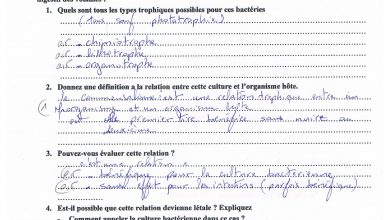 digestif des volailles ?
1. Quels sont tous les types trophiques possibles pour ces bactéries
(tous sauf phototrophie)
- chimiotrophe
- lithotrophe
- organotrophe
2. Donnez une définition a la relation entre cette culture et l'organisme hôte.
le commensalisme: c'est une relation trophique entre un
microorganisme et un organisme hôte
où le premier tire bénéfice sans nuire au
deuxième
3. Pouvez-vous évaluer cette relation ?
c'est une relation :
- bénéfique pour la culture bactérienne
- sans effet pour les intestins (parfois bénéfique)
4. Est-il possible que cette relation devienne létale ? Expliquez
- Comment appeler la culture bactérienne dans ce cas ?